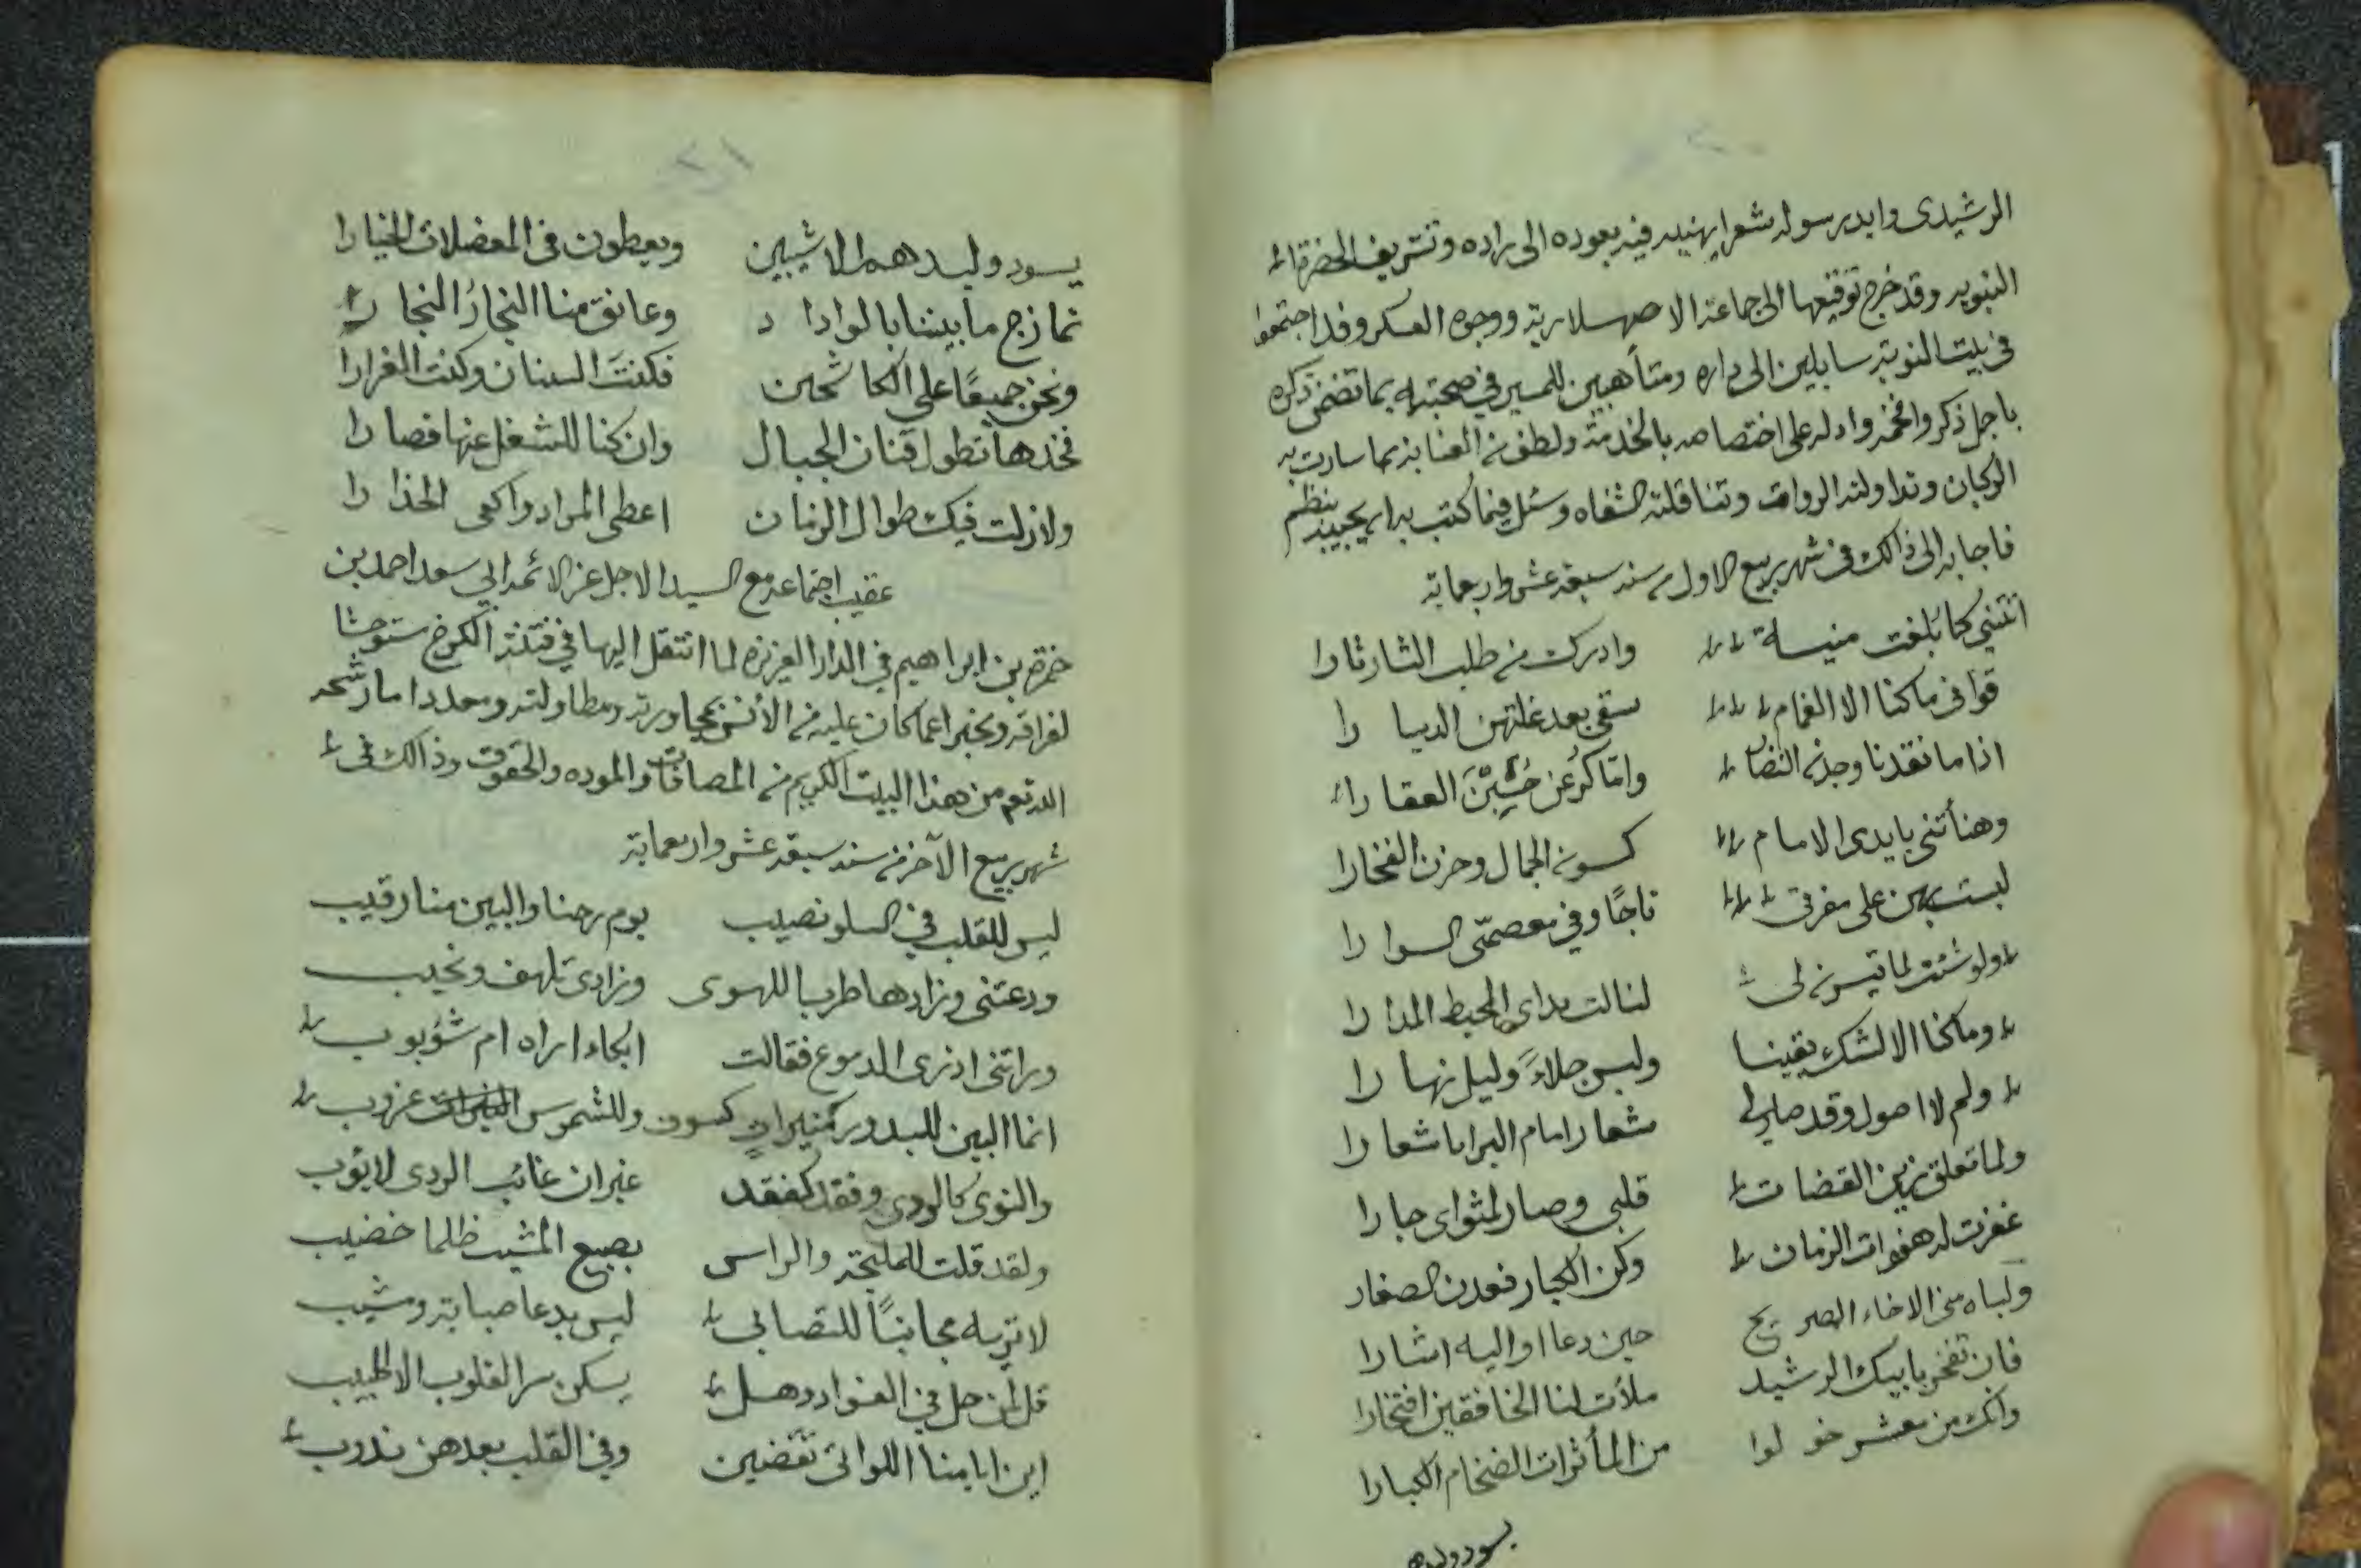 الرشيدى وابدر سوله شعرا يهنيه فيه بعوده الى داره وتشريف الحضرة
النبويه وقد خرج توقيعها الى جماعة الاصهسلارية ووجوه العسكر وقد اجتمعوا
فى بيت النوبة سايلين الى داره ومتأهبين للمسير فى صحبته بما تضمن ذكره
باجل ذكر وافخمه وادله على اختصاصه بالخدمة ولطف العناية بما سارت به
الركبان وتداولته الرواة وتناقلته الشفاه وسئل فيما كتب به ان يجيبه بنظم
فاجابه الى ذالك فى شهر ربيع الاول من سنه سبعة عشر واربعماية
اتتنى كما بلغت منيسة وادركت من طلب الثار ثارا
قوافى ما كنا الا الغمام سقى بعد غلتهن الديارا
اذا ما نقدنا وجدن النضار وامّا كرعن حُسِبْنَ العقارا
وهنأتنى بايدى الامام كسون الجمال وحزن الفخارا
لبست بهن على مفرقى تاجًا وفى معصمّى السوارا
ولو شئت لما تيسرن لى لنالت يداى المحيط المدارا
وما كنا الا لشك يقينا ولبس جلاءً وليل نهارا
ولم لا اصول وقد صار لى شعار امام البرايا شعارا
ولما تعلق زين القضات قلبى وصار لمثواى جارا
غفرت له هفوات الزمان وكن الكبار فعدن الصغار
ولباه منى الاخاء الصريح حين دعا او اليه اشارا
فان تفخر بابيك الرشيد ملأت لنا الخافقين افتخارا
وانك من معشر خولوا من المأثرات الضخام الكبارا
يسود وليدهم
يسود وليدهم الاشيبين ويعطون فى المعضلات الخيارا
تمازج ما بيننا بالوداد وعانق منا النجارُ النجارا
ونحن جميعًا على الكاشحين فكنتَ السنان وكنت الغرارا
فخدها تطول قنان الجبال وان كنا للشغل عنها قصارا
ولا زلت فيك طوال الزمان اعطى المراد واكفى الحذارا
عقيب اجتماعه مع السيد الاجل عز الائمه ابى سعد احمد بن
حمزة بن ابراهيم فى الدار العزيزة لما انتقل اليها فى فتنة الكرخ مستوحشا
لفراقه ومخبرا عما كان عليه من الأنس بمجاورته ومطاولته ومعددا ما رشحه
الله تعم من هذا البيت الكريم من المصافات والموده والحقوق وذالك فى
شهر ربيع الآخر من سنه سبعة عشر واربعماية
ليس للقلب فى السلو نصيب يوم رحنا والبين منا رقيب
ودعتنى وزادها طربا للهوى وزادى تلهف ونحيب
وراتنى اذرى الدموع فقالت ابكاء اراه ام شؤبوب
انما البين للبدور كسوف وللشموس غروب
والنوى كالردى وفقد كفقد غير ان غائب الردى لا يؤب
ولقد قلت للمليحة والراس بصبغ المشيب ظلما خضيب
لا تريه مجانبًا للتصابى ليس بدعا صبابة ومشيب
قل لمن حل فى الفواد وهل يسكن سرا القلوب الا الحبيب
اين ايامنا اللواتى تقضين وفى القلب بعدهن ندوب